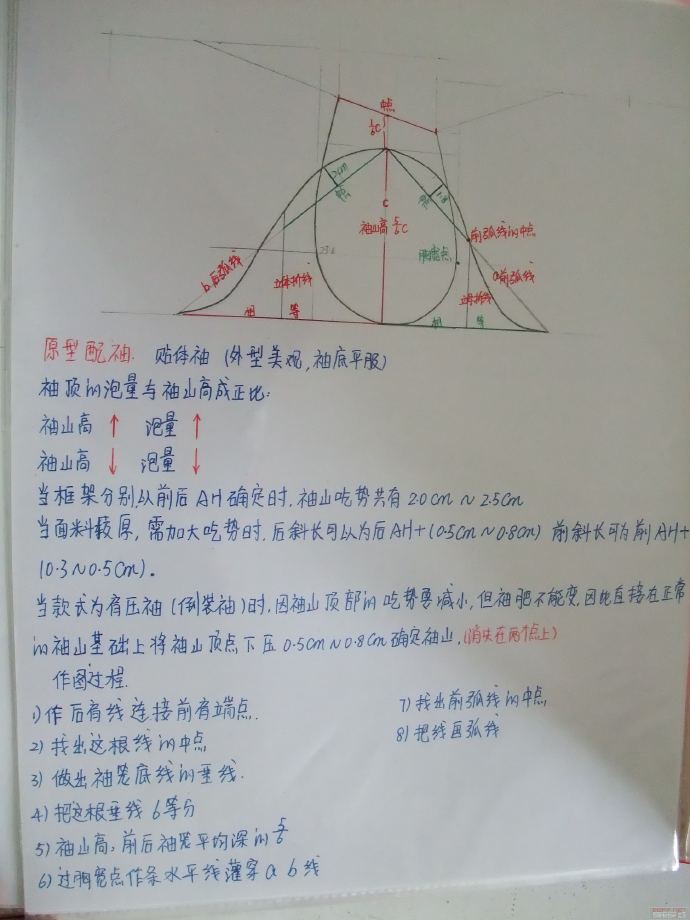 中点
1/6C
2cm
中点
1.8
中点
C
袖山高 5/6C
前弧线的中点
胸宽点
b后弧线
立体折线
a前弧线
立体折线
相 等
相 等
原型配袖. 贴体袖 (外型美观,袖底平服)
袖顶的泡量与袖山高成正比:
袖山高 ↑ 泡量 ↑
袖山高 ↓ 泡量 ↓
当框架分别以前后AH确定时,袖山吃势共有2.0cm~2.5cm
当面料较厚,需加大吃势时,后斜长可以为后AH+(0.5cm~0.8cm) 前斜长可为前AH+
(0.3~0.5cm).
当款式为肩压袖(倒装袖)时,因袖山顶部的吃势要减小,但袖肥不能变,因此直接在正常
的袖山基础上将袖山顶点下压0.5cm~0.8cm确定袖山.(消失在两个点上)
作图过程.
1)作后肩线连接前肩端点.
2)找出这根线的中点
3)做出袖笼底线的垂线.
4)把这根垂线6等分
5)袖山高:前后袖笼平均深的5/6
6)过胸宽点作条水平线灌穿a b线
7)找出前弧线的中点
8)把线画弧线